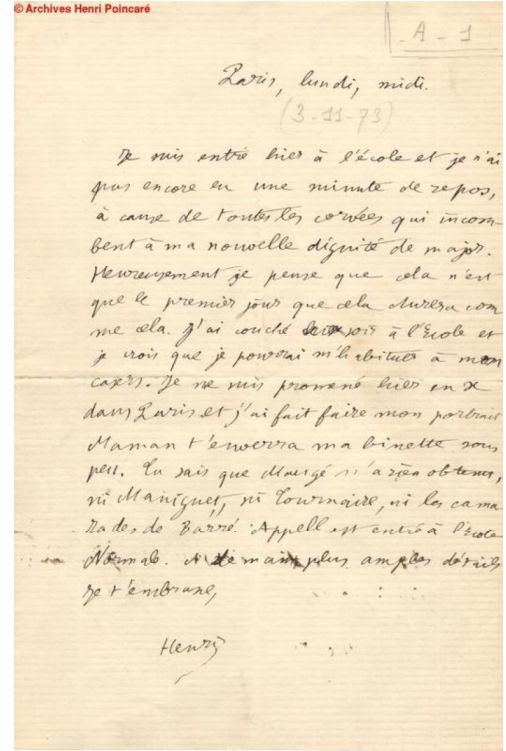 © Archives Henri Poincaré
A - 1
Paris, lundi, midi.
(3-11-73)
Je suis entré hier à l'école et je n'ai
pas encore eu une minute de repos,
à cause de toutes les corvées qui incom-
bent à ma nouvelle dignité de major.
Heureusement je pense que cela n'est
que le premier jour que cela durera com
me cela. J'ai couché soir à l'Ecole et
je crois que je pourrai m'habituer à mon
casert. Je me suis promené hier en X
dans Paris et j'ai fait faire mon portrait
Maman t'enverra ma binette sous
peu. Tu sais que Maugé n'a rien obtenu,
ni Maniguet, ni Tournaire, ni les cama
rades de Barré. Appell est entré à l'Ecole
Normale. A demain plus amples détails
Je t'embrasse,
Henri